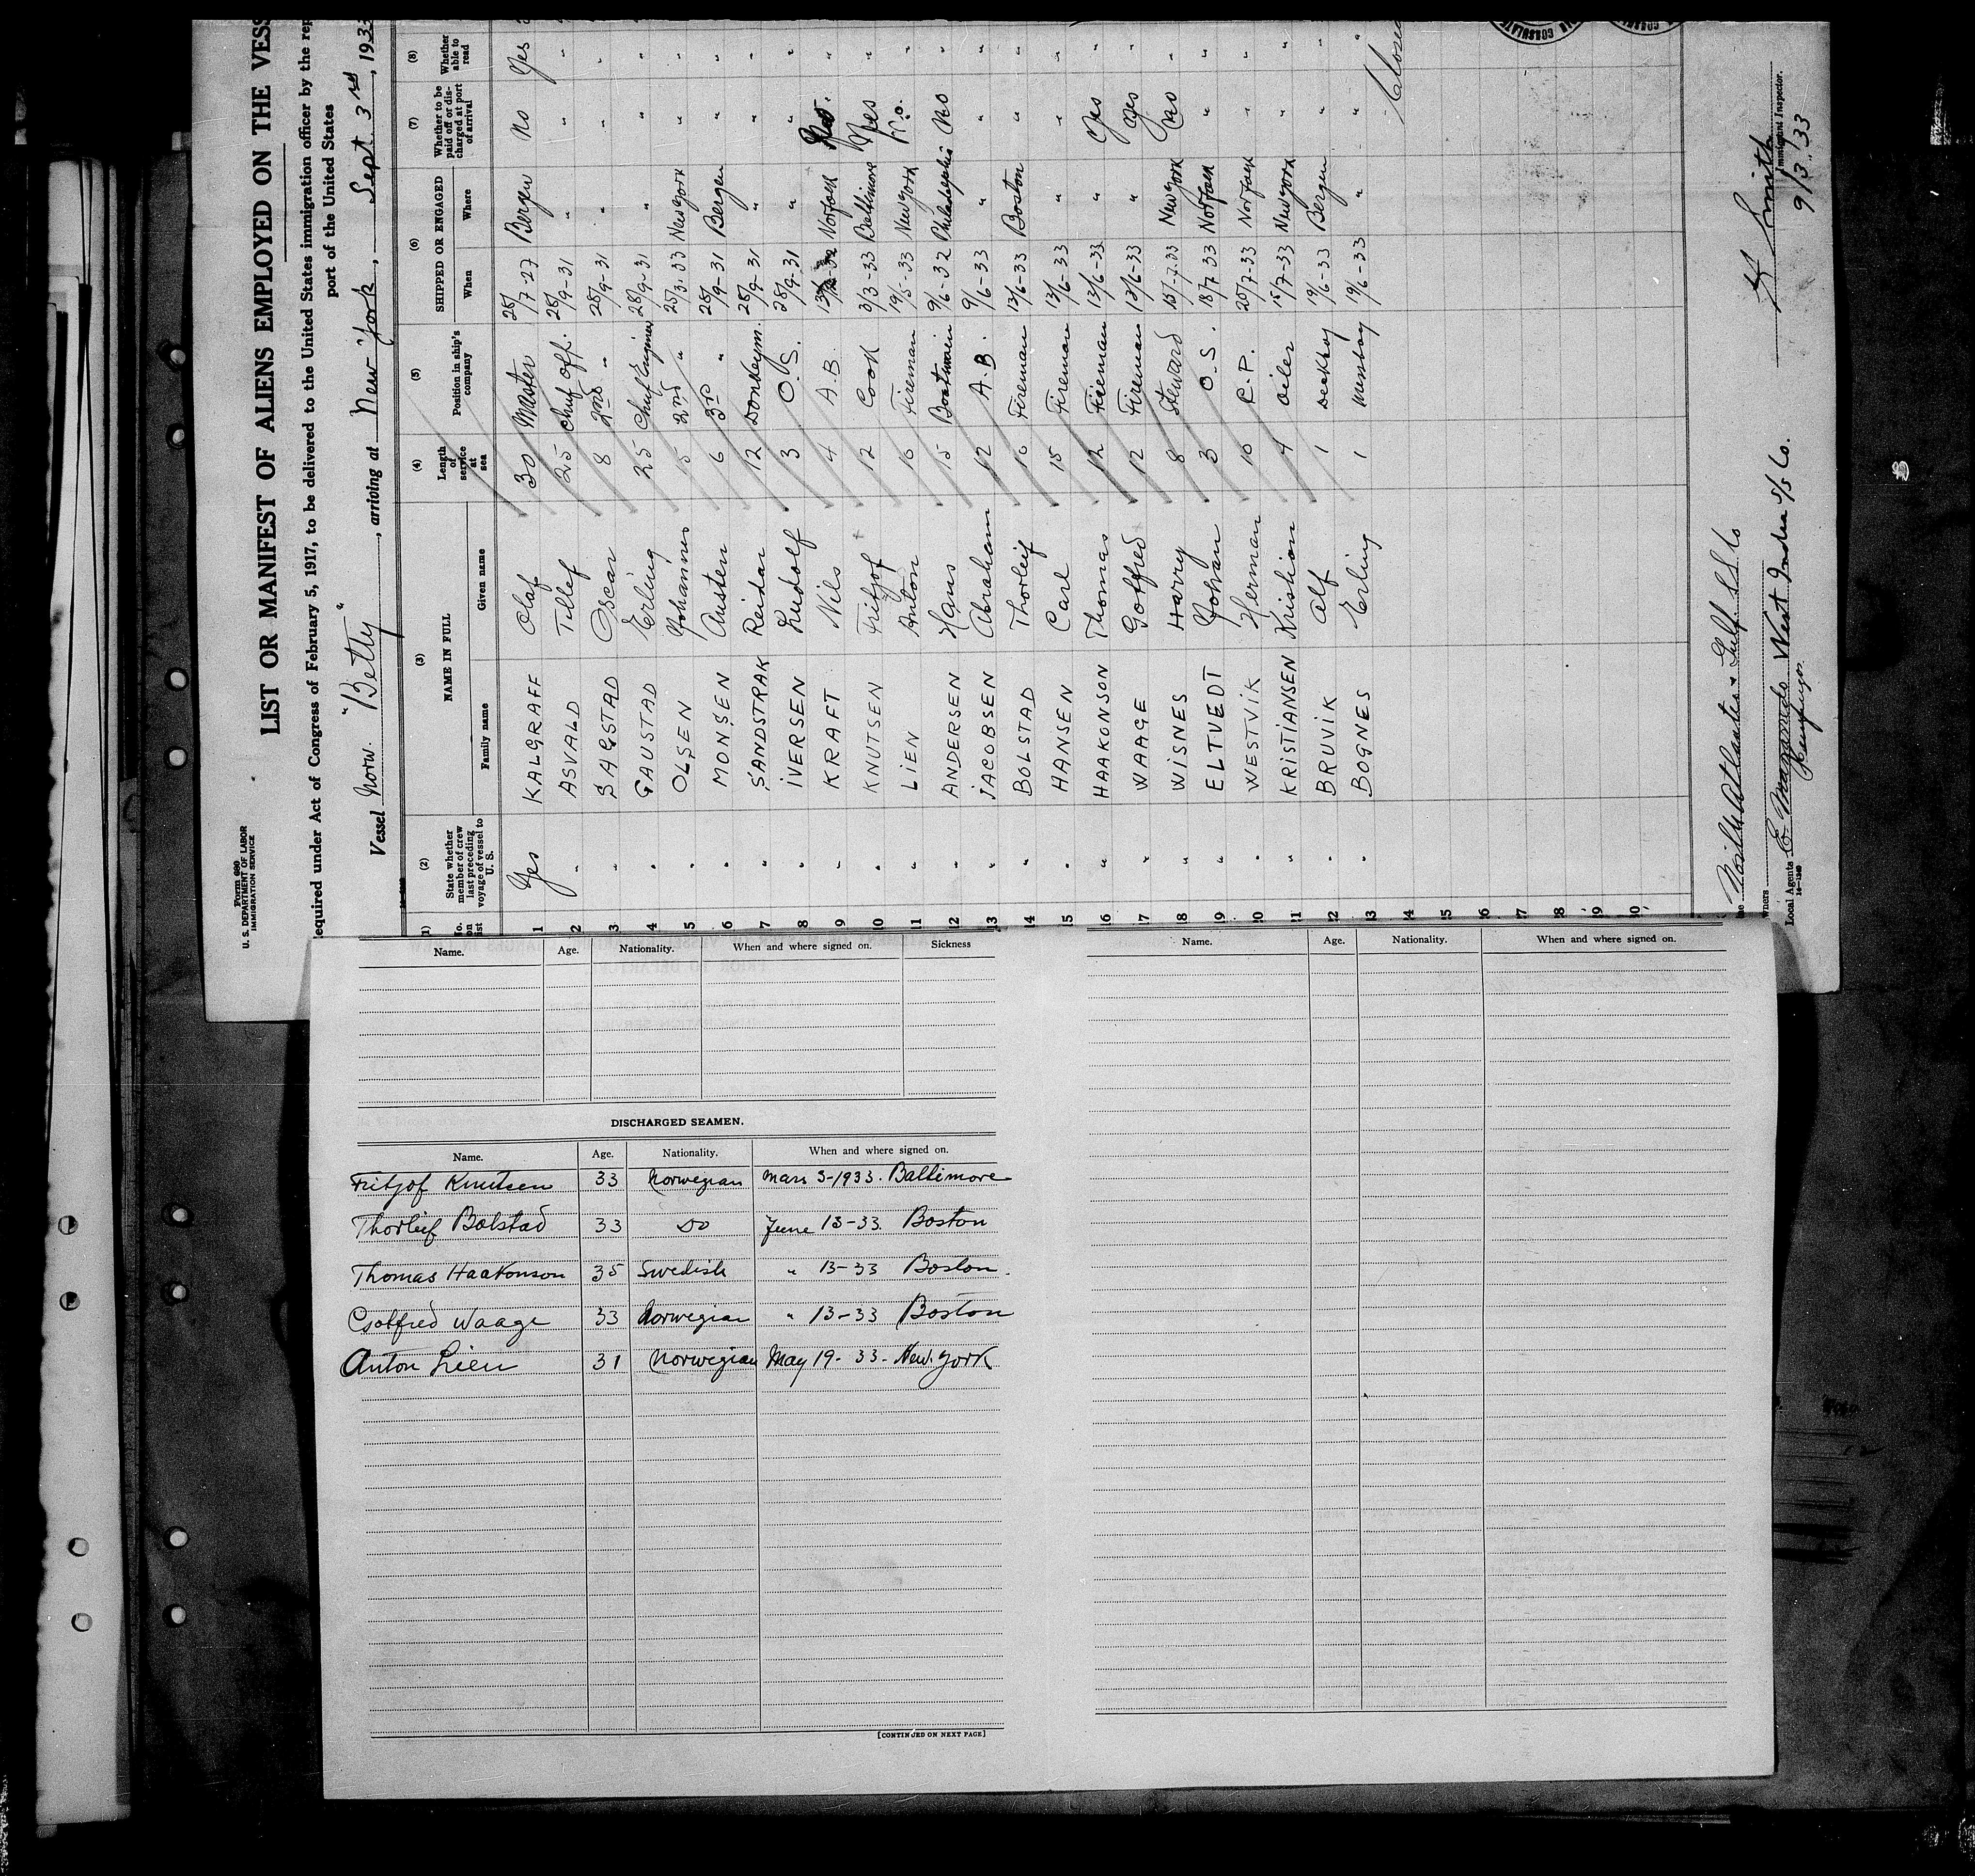 Form 680
U. S. DEPARTMENT OF LABOR
IMMIGRATION SERVICE
LIST OR MANIFEST OF ALIENS EMPLOYED ON THE VESS
equired under Act of Congress of February 5, 1917, to be delivered to the United States immigration officer by the rep
port of the United States
Vessel Norw. "Betty", arriving at New-York, Sept. 3rd, 1933
(1) (2) (3) (4) (5) (6) (7) (8)
No. on list State whether member of crew last preceding voyage of vessel to U. S. NAME IN FULL Family name Given name Length of service at sea Position in ship's company SHIPPED OR ENGAGED When Where Whether to be paid off or discharged at port of arrival Whether able to read
1 Yes KALGRAFF Olaf 30 Master 28/7-27 Bergen No Yes
2 " ASVALD Tellef 25 Chief Off. 28/9-31 " " "
3 " SAGSTAD Oscar 8 2nd " 28/9-31 " " "
4 " GAUSTAD Erling 25 Chief Engineer 28/9-31 " " "
5 " OLSEN Johannes 5 2nd " 25/3-33 New York " "
6 " MONSEN Austen 6 3rd " 28/9-31 Bergen " "
7 " SANDSTRAK Reidar 12 Donkeym. 28/9-31 " " "
8 " IVERSEN Ludolf 3 O.S. 28/9-31 " " "
9 " KRAFT Nils 4 A.B. Norfolk "
10 " KNUTSEN Fritjof 12 Cook 3/3-33 Baltimore Yes "
11 " LIEN Anton 16 Fireman 19/5-33 New York "
12 " ANDERSEN Hans 15 Boatswain 9/6-32 Philadelphia No "
13 " JACOBSEN Abraham 12 A.B. 9/6-33 " " "
14 " BOLSTAD Thorleif 16 Fireman 13/6-33 Boston " "
15 " HANSEN Carl 15 Fireman 13/6-33 " " "
16 " HAAKONSON Thomas 12 Fireman 13/6-33 " Yes "
17 " WAAGE Gotfred 12 Fireman 13/6-33 " Yes "
18 " WISNES Harry 8 Steward 15/7-33 New York No "
19 " ELTVEDT Johan 3 O.S. 18/7 33 Norfolk " "
20 " WESTVIK Herman 10 C.P. 20/7-33 Norfolk " "
21 " KRISTIANSEN Kristian 4 Oiler 15/7-33 New York " "
22 " BRUVIK Alf 1 Deckboy 19/6-33 Bergen " "
23 " BOGNES Erling 1 Messboy 19/6-33 " " "
24
25
26
27
28
29
30
Closed
CONSULATE
& Gulf S.S. Co
wners
Local Agents West India S/S Co.
Smith
Immigrant Inspector.
9/3/33
Name. Age. Nationality. When and where signed on. Sickness
DISCHARGED SEAMEN.
Name. Age. Nationality. When and where signed on.
Fritjof Knutsen 33 Norwegian Mars 3-1933. Baltimore
Thorleif Bolstad 33 Do June 13-33. Boston
Thomas Haakonson 35 Swedish " 13-33 Boston.
Gotfred Waage 33 Norwegian " 13-33 Boston
Anton Lien 31 Norwegian May 19-33- New. York
[CONTINUED ON NEXT PAGE]
Name. Age. Nationality. When and where signed on.